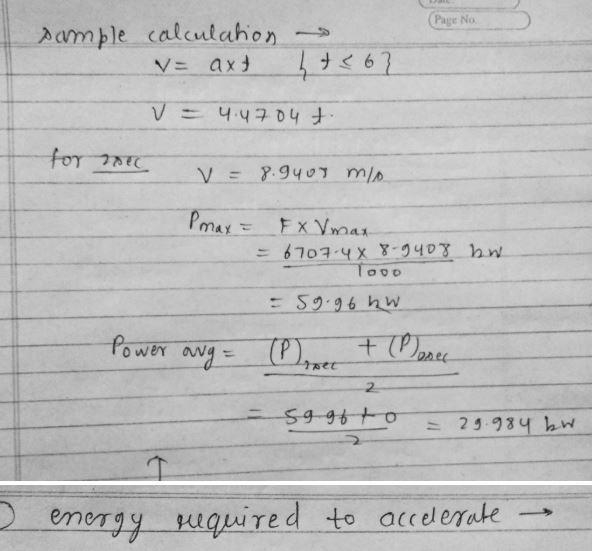 Page No.
Sample calculation →
V = a×t { t ≤ 6 }
V = 4.4704 t.
for 2sec
V = 8.9408 m/s
Pmax = F × Vmax
= 6707.4 × 8.9408 kw
1000
= 59.96 kw
Power avg = (P)2sec + (P)0sec
2
= 59.96 + 0 = 29.984 kw
2
↑
energy required to accelerate →